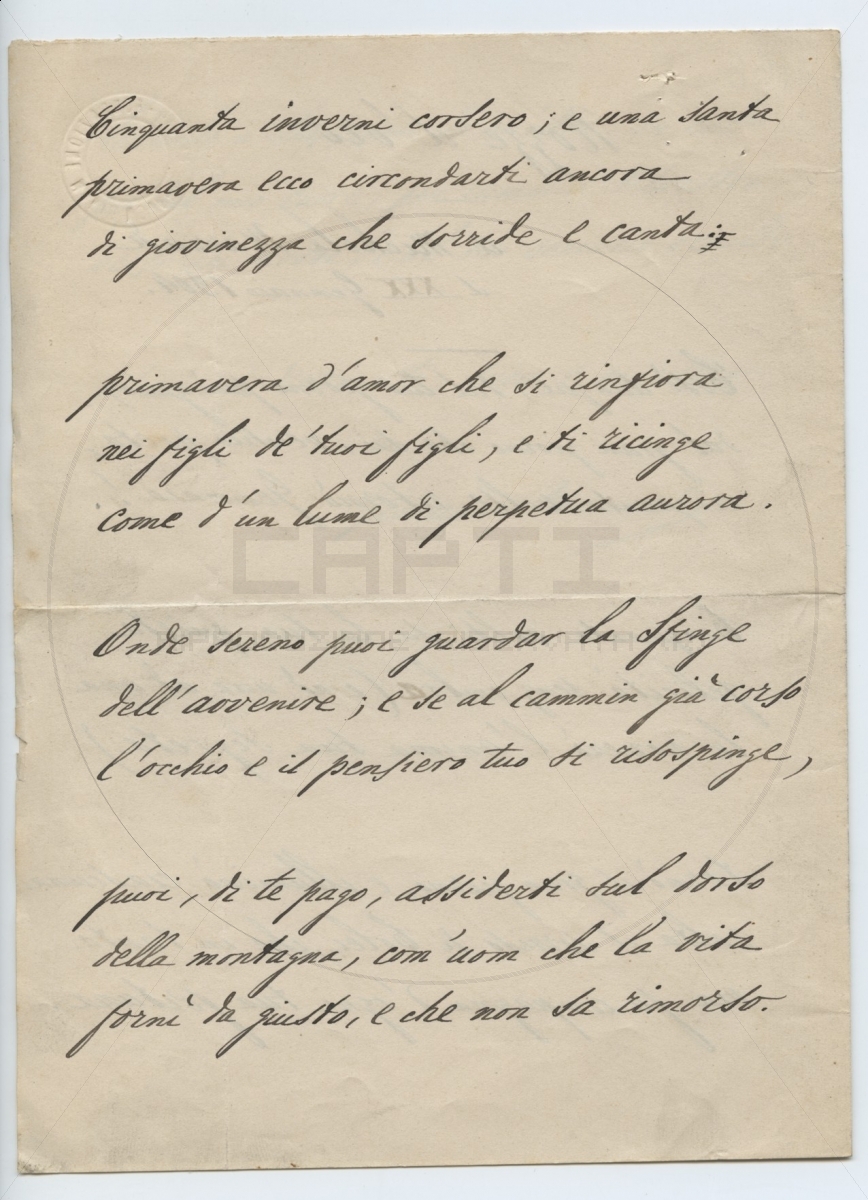 Cinquanta inverni corsero; e una santa
primavera ecco circondarti ancora
di giovinezza che sorride e canta:
primavera d'amor che si rinfiora
nei figli de' tuoi figli, e ti ricinge
come d'un lume di perpetua aurora.
CAPTI
Onde sereno puoi guardar la Sfinge
dell'avvenire; e se al cammin già corso
l'occhio e il pensiero tuo si risospinge,
puoi, di te pago, assiderti sul dorso
della montagna, com'uom che la vita
fornì da giusto, e che non sa rimorso.